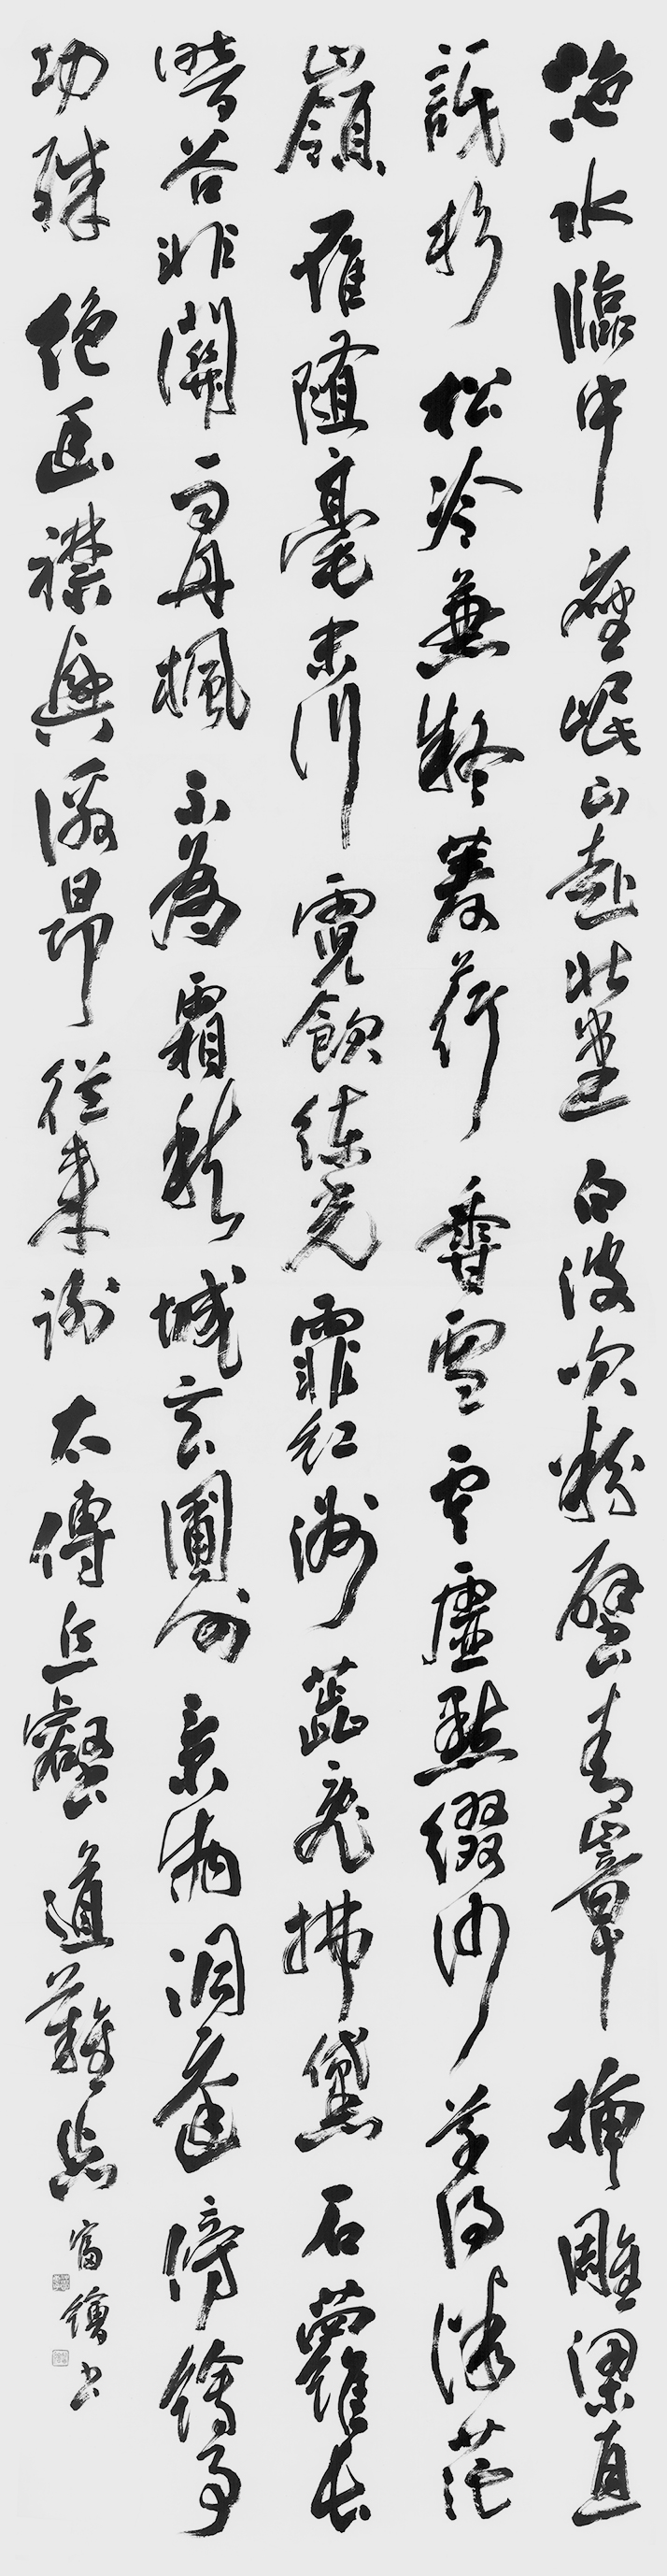 沲水臨中座岷山赴北堂白波吹粉壁青嶂插雕梁直
訝杉松冷兼疑菱荇香雪雲虛點綴沙草得微茫
嶺雁隨毫末川霓飲練光霏紅洲蕊亂拂黛石蘿長
暗谷非關雨丹楓不為霜秋城玄圃外景物洞庭傍繪事
功殊絕幽襟興激昂從來謝太傅丘壑道難忘 富書